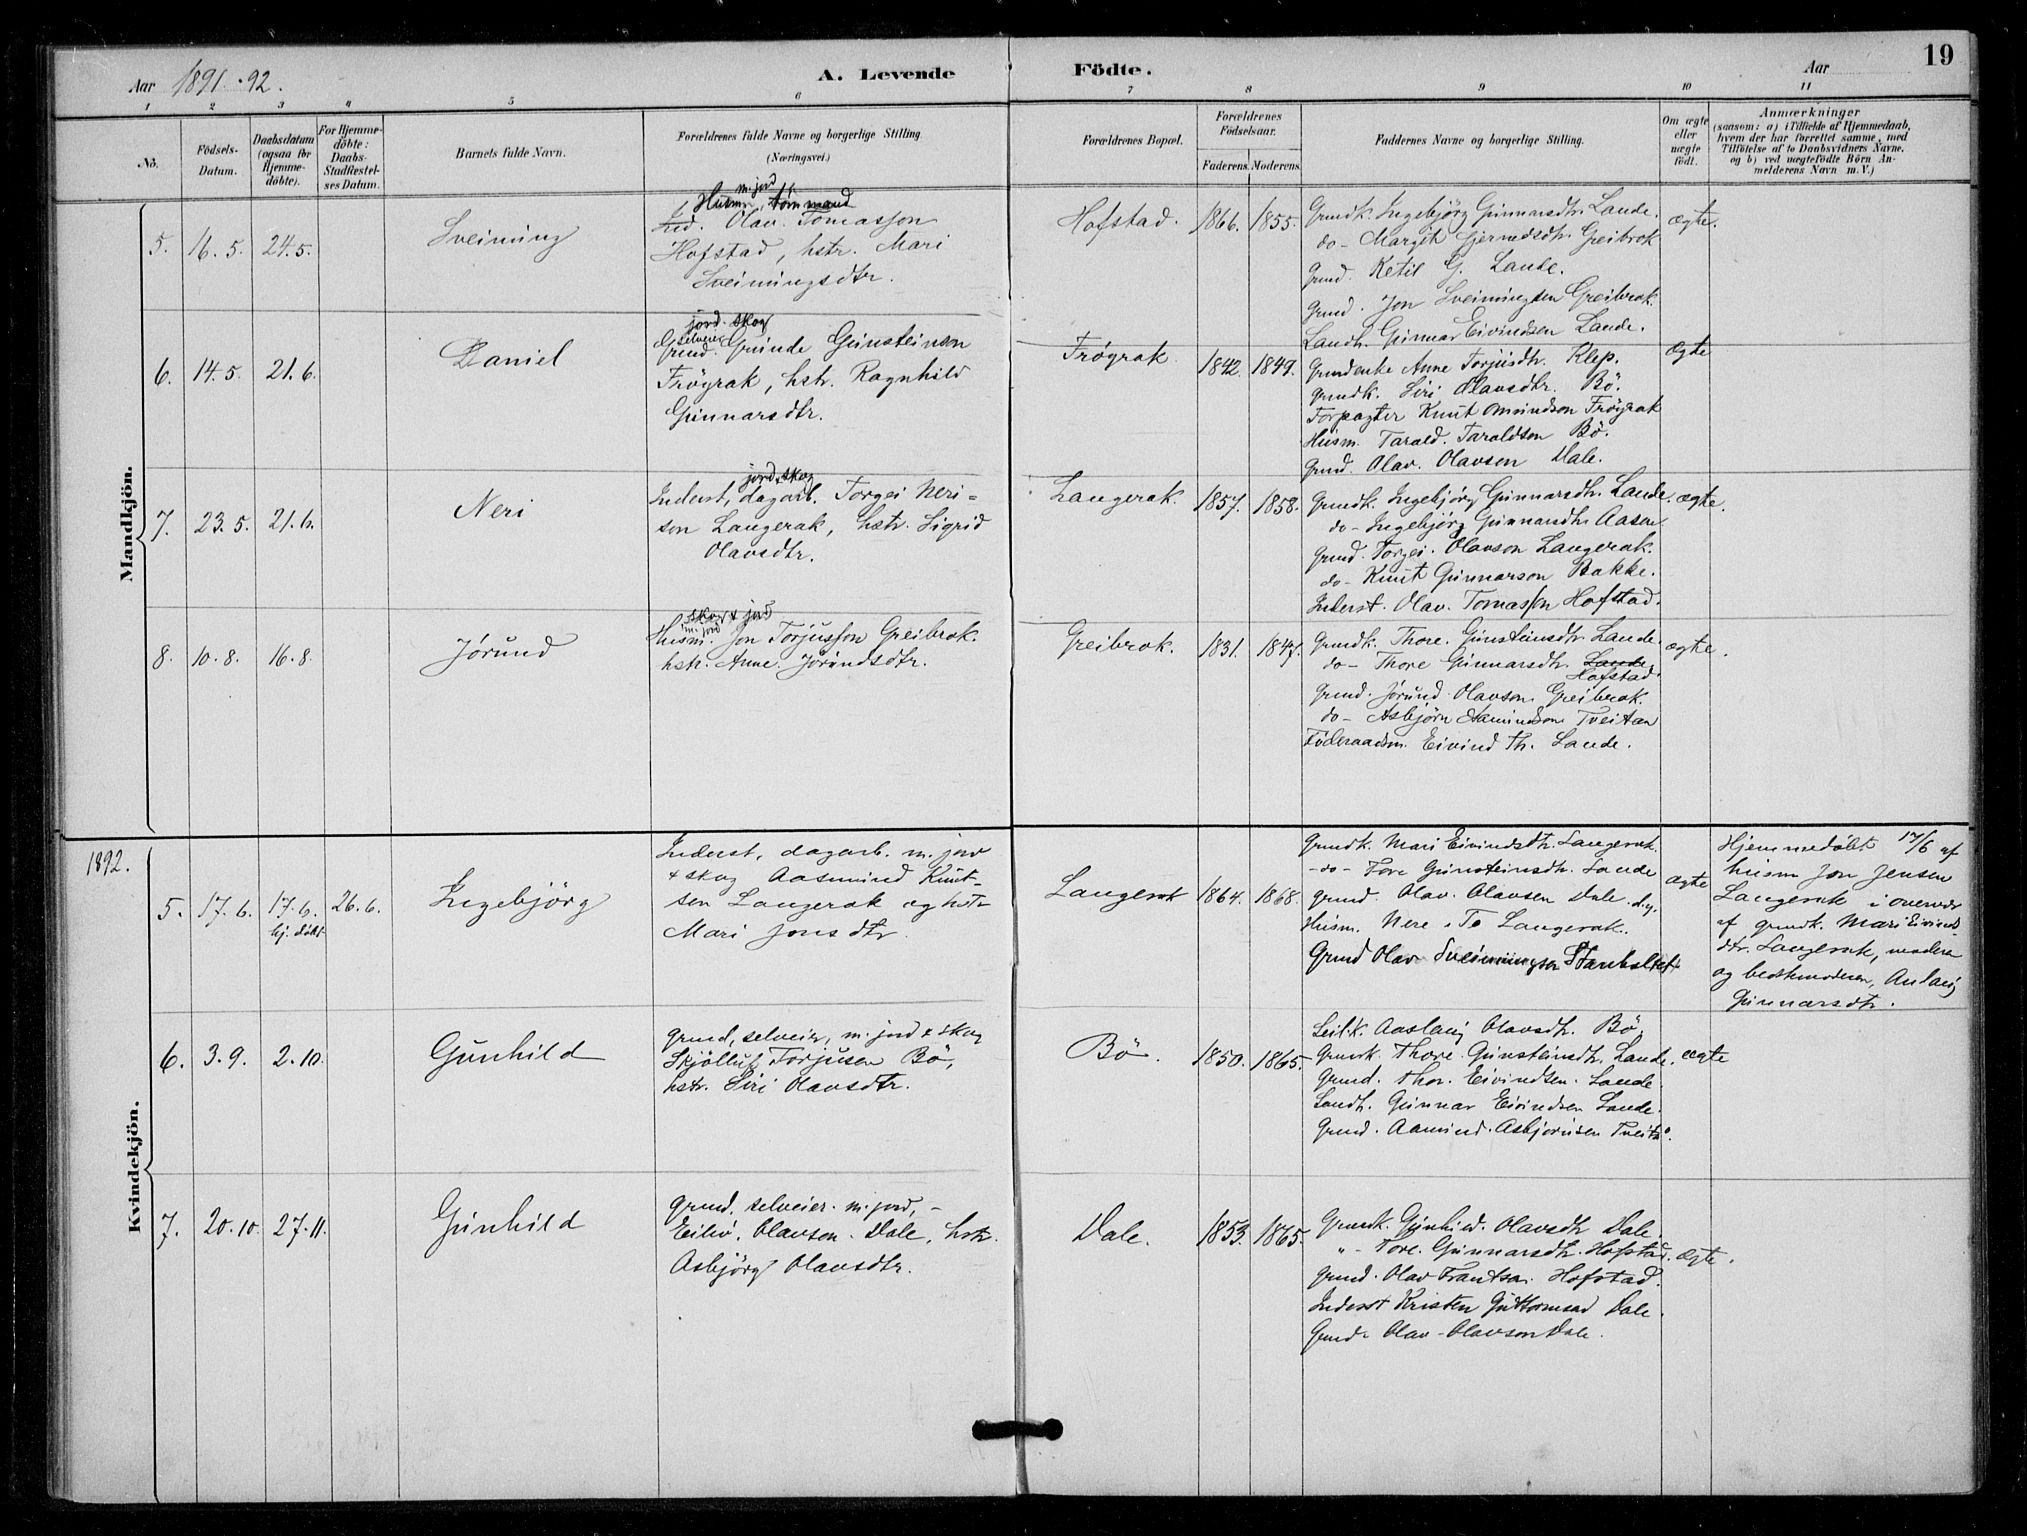 Aar 1891-92.
A. Levende Födte.
Aar
19
1 2 3 4 5 6 7 8 9 10 11
No.
Födsels-Datum.
Daabsdatum (ogsaa for Hjemme-döbte).
For Hjemme-döbte: Daabs-Stadfæstel-ses Datum.
Barnets fulde Navn.
Forældrenes fulde Navne og borgerlige Stilling.
(Næringsvei.)
Forældrenes Bopæl.
Forældrenes Födselsaar.
Faderens. Moderens.
Faddernes Navne og borgerlige Stilling.
Om ægte eller uægte födt.
Anmærkninger
(saasom: a) i Tilfælde af Hjemmedaab,
hvem der har forrettet samme, med
Tilföielse af to Daabsvidners Navne,
og b) ved uægtefödte Börn An-
melderens Navn m. V.)
Mandkjön.
5. 16.5. 24.5. Sveinung
m. jord
Husm, tömmand
Ind. Olav Tomasson
Hofstad, hstr. Mari
Sveinungsdtr.
Hofstad. 1866. 1855.
Grundk. Ingebjörg Gunnarsdtr. Lande.
do- Margit Gjermdsdtr. Greibrok
Grund. Ketil G. Lande.
Grund. Jon Sveinungsen Greibrok
Landh. Gunnar Eivindsen Lande.
ægte.
6. 14.5. 21.6. Daniel
jord. skog
selveier
Grund. Grunde Gunsteinson
Frögrak, hstr. Ragnhild
Gunnarsdtr.
Frögrak 1842. 1849.
Grundenke Anne Torjusdtr. Klep.
Grundk. Siri Olavsdtr. Bö.
Forpagter Knut Omundson Frögrak
Husm. Tarald Taraldson Bö.
Grund. Olav Olavson Dale.
Ægte
7. 23.5. 21.6. Neri
jord, skog
Inderst, dagarb. Torgei Neri-
son Langerak, hstr. Sigrid
Olavsdtr.
Langerak. 1857. 1858.
Grundk. Ingebjörg Gunnarsdtr. Lande.
do- Ingebjörg Gunnarsdtr. Aasen
Grund. Torgei Olavson Langerak.
do- Knut Gunnarson Bakke.
Inderst. Olav Tomasson Hofstad.
ægte.
8. 10.8. 16.8. Jörund
skog & jord
m. jord
Husm. Jon Torjusson Greibrok.
hstr. Anne Jörundsdtr.
Greibrok. 1831. 1847.
Grundk. Thore Gunsteinsdtr. Lande.
do- Thore Gunnarsdtr. Lande
Hofstad
Grund. Jörund Olavson Greibrok.
do- Asbjörn Aamundson Tveitan
Föderaadsm. Eivind Th. Lande.
ægte.
Kvindekjön.
1892.
5. 17.6. 17.6. hj. döbt 26.6. Ingebjörg
Inderst, dagarb. m. jord
& skog Aasmund Knut-
sen Langerak og hstr
Mari Jonsdtr.
Langerak 1864. 1868.
Grundk. Mari Eivindsdtr. Langerak.
-do- Tore Gunsteinsdtr. Lande
Grund. Olav Olavsen Dale d.y.
Husm. Nere To Langerak.
Grund Olav Sveinungsen
ægte
Hjemmedöbt 17/6 af
husm Jon Jensen
Langerak i overvær
af grundk. Mari Eivinds
dtr. Langerak,
og bedstemoderen, Anlaug
Gunnarsdtr.
6. 3.9. 2.10. Gunhild
Grund, selveier, m. jord & skog
Skjöllulf Torjusen Bö,
hstr. Siri Olavsdtr.
Bö. 1850. 1865.
Leil.k. Aaslaug Olavsdtr. Bö.
Grundk. Thore Gunsteinsdtr. Lande.
Grund. Thor. Eivindsen. Lande
Landh. Gunnar Eivindsen Lande.
Grund. Aamund Asbjörnsen Tveitn.
ægte
7. 20.10. 27.11. Gunhild
Grund. selveier m. jord, -
Eiliv. Olavson Dale, hstr.
Asbjörg Olavsdtr.
Dale. 1853. 1865.
Grundk. Gunhild Olavsdtr Dale.
"- Tore Gunnarsdtr. Hofstad.
Grund. Olav Frantsen Hofstad.
Inderst Kristen Guttormsen Dale.
Grund. Olav Olavson Dale.
ægte.